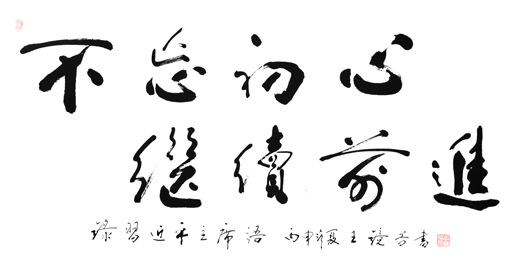 不忘初心
繼續前進
錄習近平主席語 丙申夏 王鏡芳書